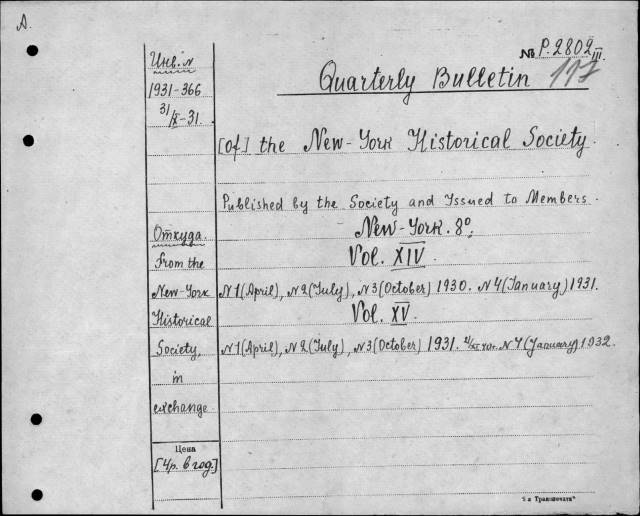 A.
№ P.2802 III
117
Quarterly Bulletin
[of] the New-York Historical Society.
Published by the Society and Issued to Members.
New-York. 8º.
Vol. XIV.
N1(April), N2(July), N3(October) 1930. N4(January) 1931.
Vol. XV.
N1(April), N2(July), N3(October) 1931. N4(January) 1932.
Инв. N
1931-366
31/X-31.
Откуда.
From the
New-York
Historical
Society,
in
exchange.
Цена
[4р. в год.]